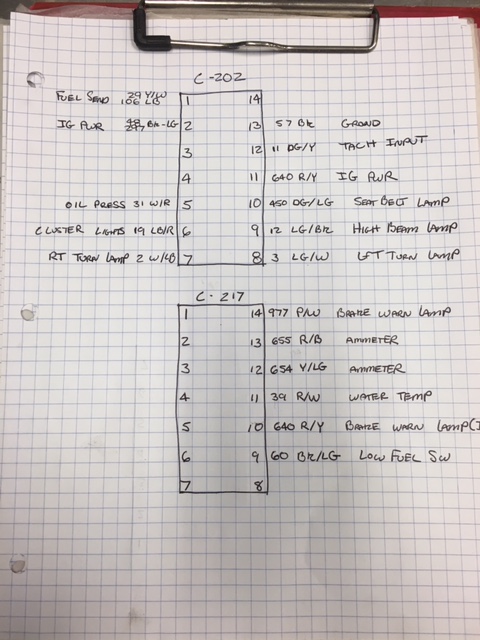 C-202
FUEL SEND 29 Y/W 1 14
106 LB
IG PWR BK-LG 2 13 57 BK GROND
3 12 11 DG/Y TACH INPUT
4 11 640 R/Y IG PWR
OIL PRESS 31 W/R 5 10 450 DG/LG SEAT BELT LAMP
CLUSTER LIGHTS 19 LB/R 6 9 12 LG/BK HIGH BEAM LAMP
RT TURN LAMP 2 W/LB 7 8 3 LG/W LFT TURN LAMP
C-217
1 14 977 P/W BRAKE WARN LAMP
2 13 655 R/B AMMETER
3 12 654 Y/LG AMMETER
4 11 39 R/W WATER TEMP
5 10 640 R/Y BRAKE WARN LAMP(I
6 9 60 BK/LG LOW FUEL SW
7 8